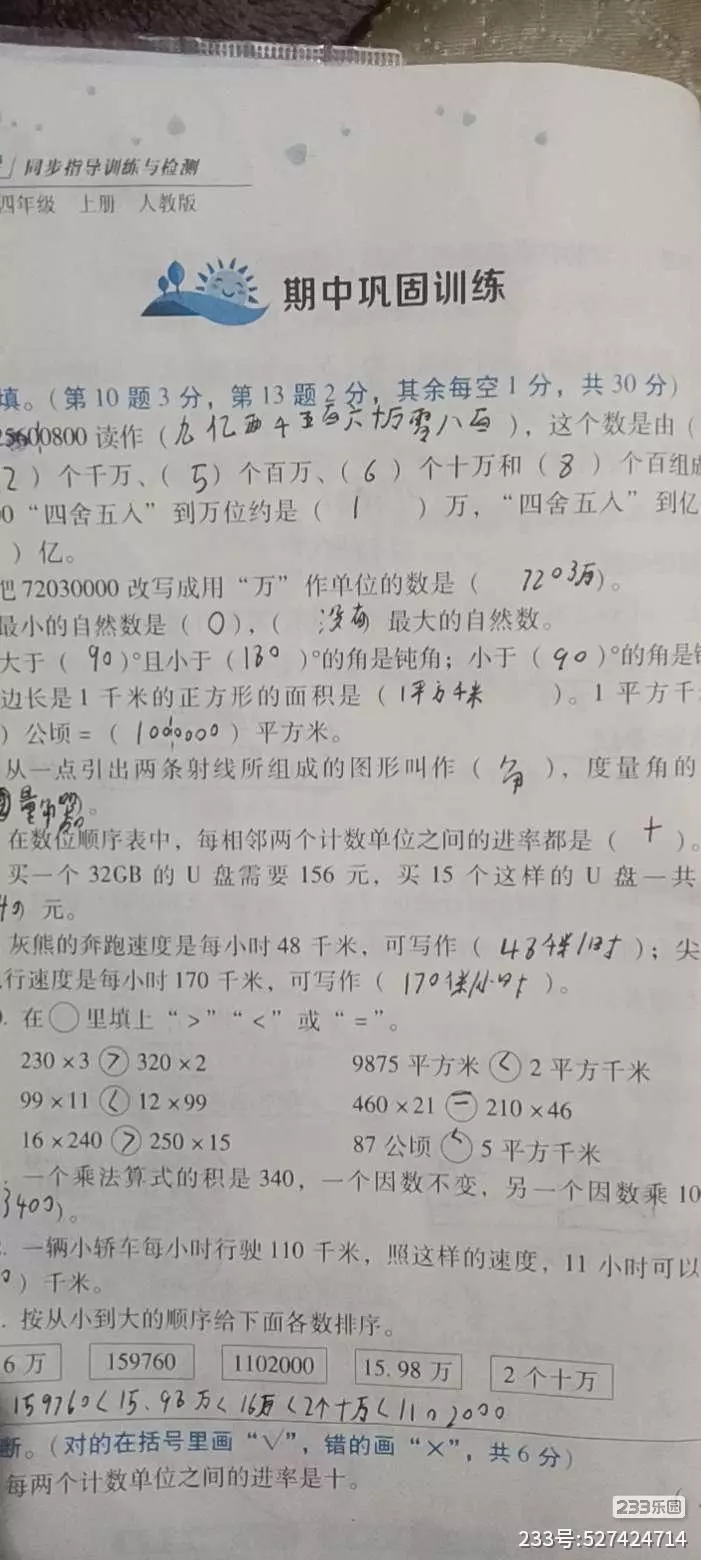 」同步指导训练与检测
四年级 上册 人教版
期中巩固训练
填。(第10题3分，第13题2分，其余每空1分，共30分)
0800读作(九亿两千五百六十万零八百)，这个数是由(
2)个千万、(5)个百万、(6)个十万和(8)个百组成
0“四舍五入”到万位约是(1)万，“四舍五入”到亿
)亿。
把72030000改写成用“万”作单位的数是(7203万)。
最小的自然数是(0)，(没有最大的自然数。
大于(90)°且小于(180)°的角是钝角；小于(90)°的角是锐
边长是1千米的正方形的面积是(1平方千米)。1平方千
)公顷=(1000000)平方米。
从一点引出两条射线所组成的图形叫作(角)，度量角的
量角器。
在数位顺序表中，每相邻两个计数单位之间的进率都是(十)。
买一个32GB的U盘需要156元，买15个这样的U盘一共
40元。
灰熊的奔跑速度是每小时48千米，可写作(48千米/时)；尖
行速度是每小时170千米，可写作(170千米/小时)。
. 在○里填上“>”“<”或“=”。
230×3>320×2 9875平方米<2平方千米
99×11<12×99 460×21=210×46
16×240>250×15 87公顷<5平方千米
. 一个乘法算式的积是340，一个因数不变，另一个因数乘10
3400)。
. 一辆小轿车每小时行驶110千米，照这样的速度，11小时可以
0)千米。
. 按从小到大的顺序给下面各数排序。
6万 159760 1102000 15.98万 2个十万
159760<15.98万<16万<2个十万<1102000
断。(对的在括号里画“√”，错的画“×”，共6分)
每两个计数单位之间的进率是十。 (
233乐园
233号:527424714